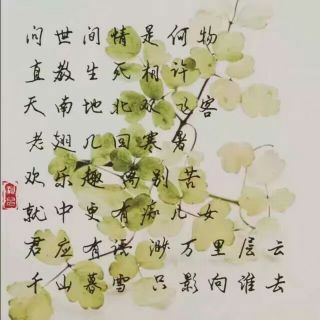 问世间情是何物
直教生死相许
天南地北双飞客
老翅几回寒暑
欢乐趣离别苦
就中更有痴儿女
君应有语渺万里层云
千山暮雪只影向谁去